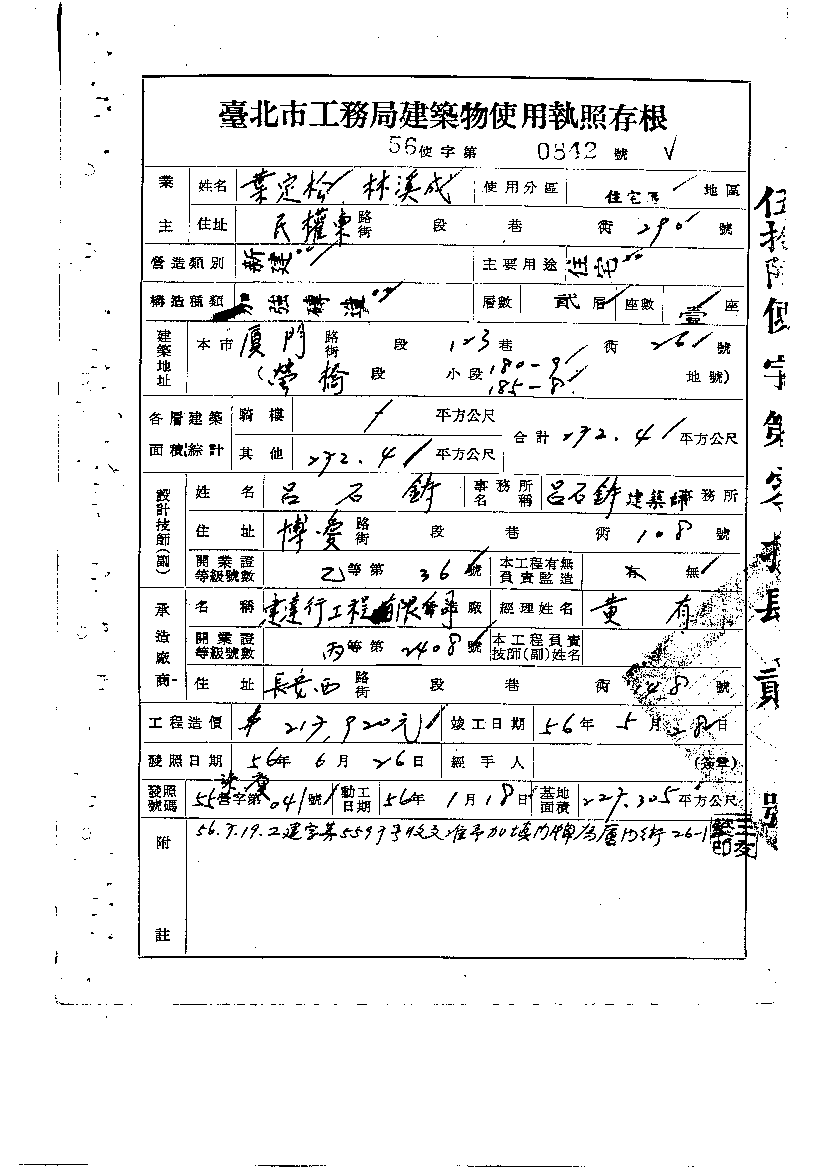 臺北市工務局建築物使用執照存根
56使字第 0842 號
業主 姓名 葉定松 林溪成 使用分區 住宅區 地區
住址 民權東 路街 段 巷 衖 290 號
營造類別 新建 主要用途 住宅
構造種類 加強磚造 層數 貳層 座數 壹座
建築地址 本市 厦門 路街 段 123 巷 衖 26 號
(螢橋 段 小段 180-9 185-8 地號)
各層建築面積綜計 騎樓 平方公尺 合計 272.41 平方公尺
其他 272.41 平方公尺
設計技師(副) 姓名 呂石 事務所名稱 呂石 建築師事務所
住址 博愛 路街 段 巷 衖 108 號
開業證等級號數 乙等第 36 號 本工程有無負責監造 有 無
承造廠商 名稱 建達行工程有限 廠 經理姓名 黃有
開業證等級號數 丙等第 2408 本工程負責技師(副)姓名
住址 長安西 路街 段 巷 衖 48 號
工程造價 217,920元 竣工日期 56年 5月 28日
發照日期 56年 6月 26日 經手人 (簽章)
發照號碼 55營字第041號 動工日期 56年 1月 18日 基地面積 227.305 平方公尺
附註 56.7.19.
伍拾陸使字第零捌肆貳號